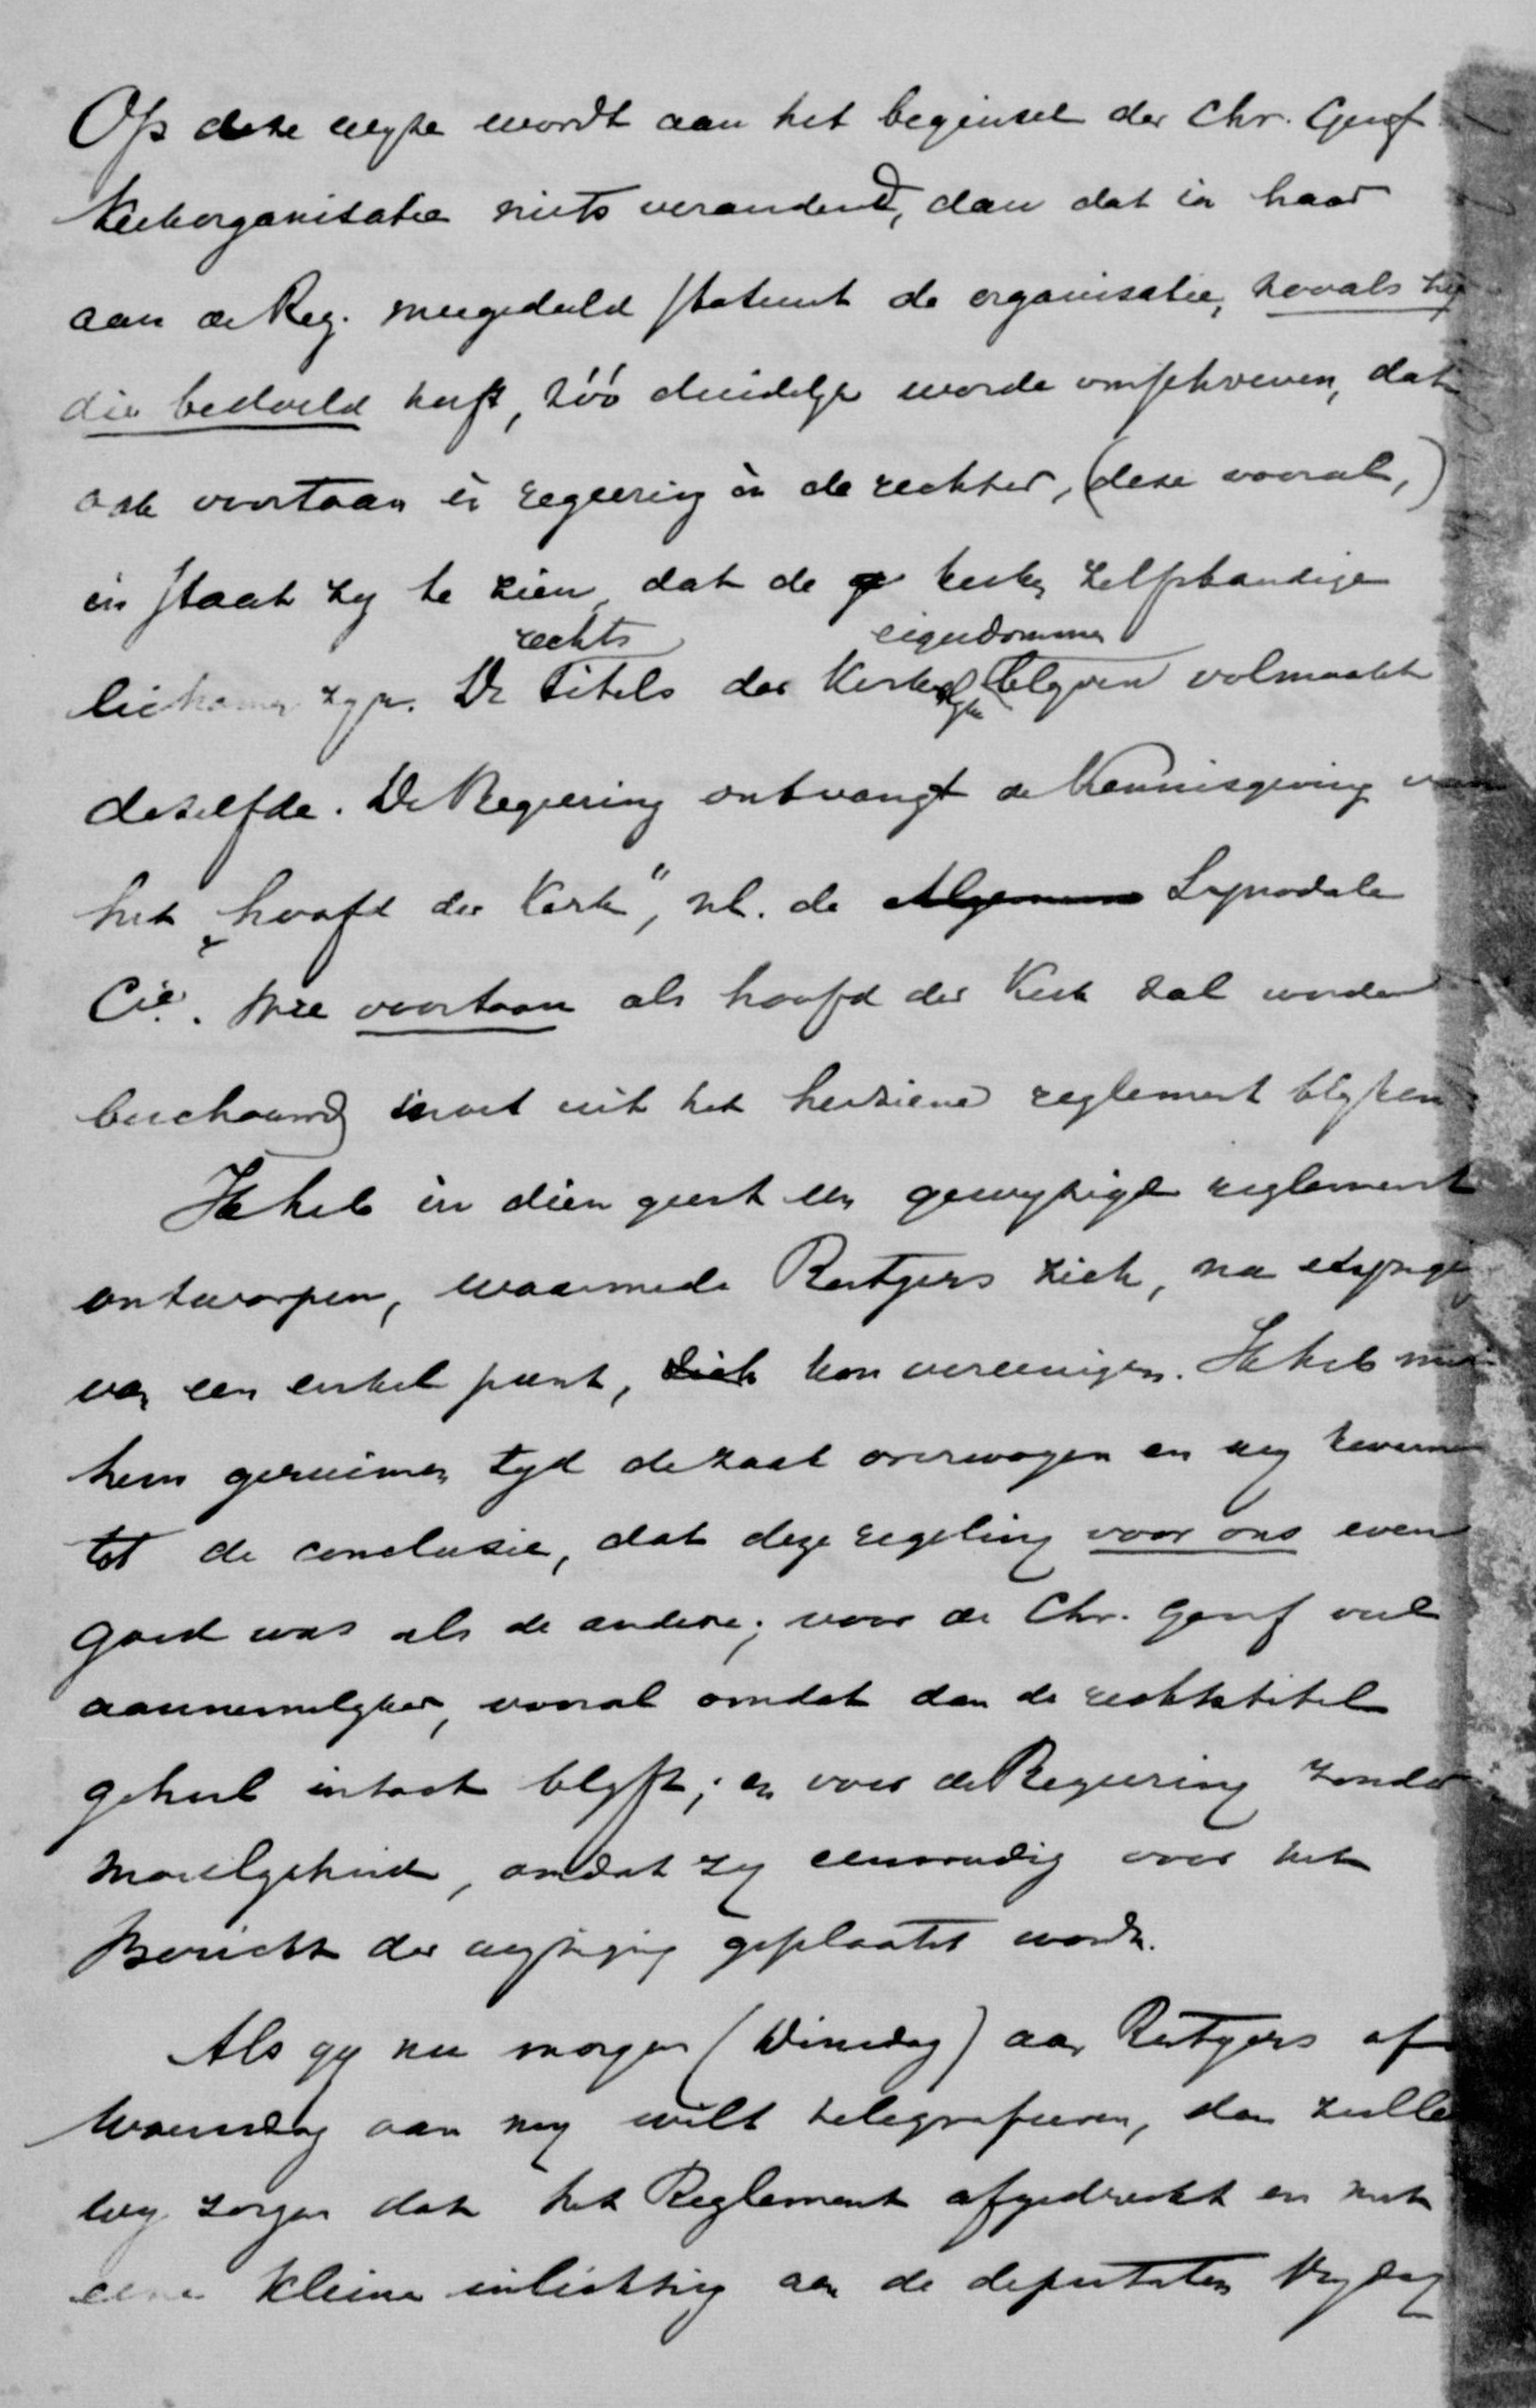 Op deze wijze wordt aan het beginsel der Chr. Geref
Kerkorganisatie niets veranderd, dan dat in haar
aan de Reg. meegedeeld statuut de organisatie, zooals zij
die bedoeld heeft, zóó duidelijk worde omschreven, dat
ook voortaan èn regeering èn de rechter, (deze vooral,)
in staat zij te zien, dat de kerken zelfstandige
rechts eigendommen
lichamen zijn. De titels der Kerkelijke blijven volmaakt
dezelfde. De Regeering ontvangt de kennisgeving van
het „hoofd der Kerk", nl. de Algemeene Synodale
Cie. Wie voortaan als hoofd der Kerk zal worden
beschouwd moet uit het herziene reglement blijken
Ik heb in dien geest een gewijzigd reglement
ontworpen, waarmede Rutgers zich, na wijziging
van een enkel punt, zich kon vereenigen. Ik heb met
hem geruimen tijd de zaak overwogen en wij kwamen
tot de conclusie, dat deze regeling voor ons even
goed was als de andere; voor de Chr. Geref veel
aannemelijker, vooral omdat dan de rechtstitel
geheel intact blijft; en voor de Regeering zonder
moeilijkheid, omdat zij eenvoudig voor het
Bericht der wijziging geplaatst wordt.
Als gij nu morgen (Dinsdag) aan Rutgers of
Woensdag aan mij wilt telegrafeeren, dan zullen
wij zorgen dat het Reglement afgedrukt en met
eene kleine inlichting aan de deputaten Vrijdag